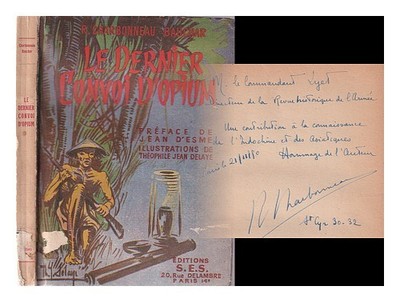 R. CHARBONNEAU BAUCHAR
LE DERNIER
CONVOI D'OPIUM
PRÉFACE DE
JEAN D'ESME
ILLUSTRATIONS DE
THÉOPHILE JEAN DELAYE
ÉDITIONS
S.E.S.
20, RUE DELAMBRE
PARIS 14e
LE
DERNIER
CONVOI
D'OPIUM
le Commandant
de la Revue historique de l'Armée
Une contribution à la connaissance
de l'Indochine et des Asiatiques
Hommage de l'Auteur
R Charbonneau
St Cyr 30-32